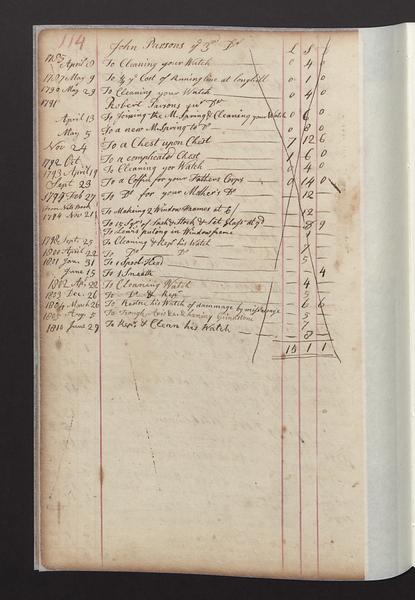 114 John Parsons ye 3rd Dr L S
1785 April 8 To Cleaning your Watch 0 4 0
1787 May 9 To ye Cost of Runing line at longhill 0 1 0
1790 May 29 To Cleaning your Watch 0 4 0
1791 Robert Parsons Dr
April 13 To Joining the M. Spring & Cleaning your Watch 0 6
May 5 To a new M. Spring to Do 0 8 0
Nov 24 To a Chest upon Chest 7 12 6
1792 Oct To a complicated Chest 1 6 0
1793 April 19 To Cleaning your Watch 0 4 0
Sept 23 To a Coffin for your Fathers Corps 0 14 0
1794 Feb 27 To Do for your Mother's Do 12
from
Nov 21 To Making 2 Window Frames at 6/ 12
To 15 Sqrs of Sash & Stock & Set glass
To Lewis puting in Window frame
1798 Sept. 25 To Cleaning & Repg his Watch
1801 April 22 To Do Do
1801 June 31 To 1 Spool Head 5
June 15 To 1 4
1802 Apr 22 To Cleaning Watch 4
1803 Dec. 26 To Do & Repg 5
1804 March 26 To Restore his Watch of dammage by 6 6
Aug. 5 To Trough Axis & hanging Grindstone 5
1810 June 29 To Repg & Clean his Watch 8
10 1 1